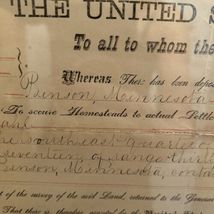 THE UNITED S
To all to whom the
Whereas There has been depo
Benson, Minnesota
"To secure Homesteads to actual Settle
southeast quarter o
seventeen of range thirt
Benson, Minnesota, conta
of the survey of the said Land, returned to the General